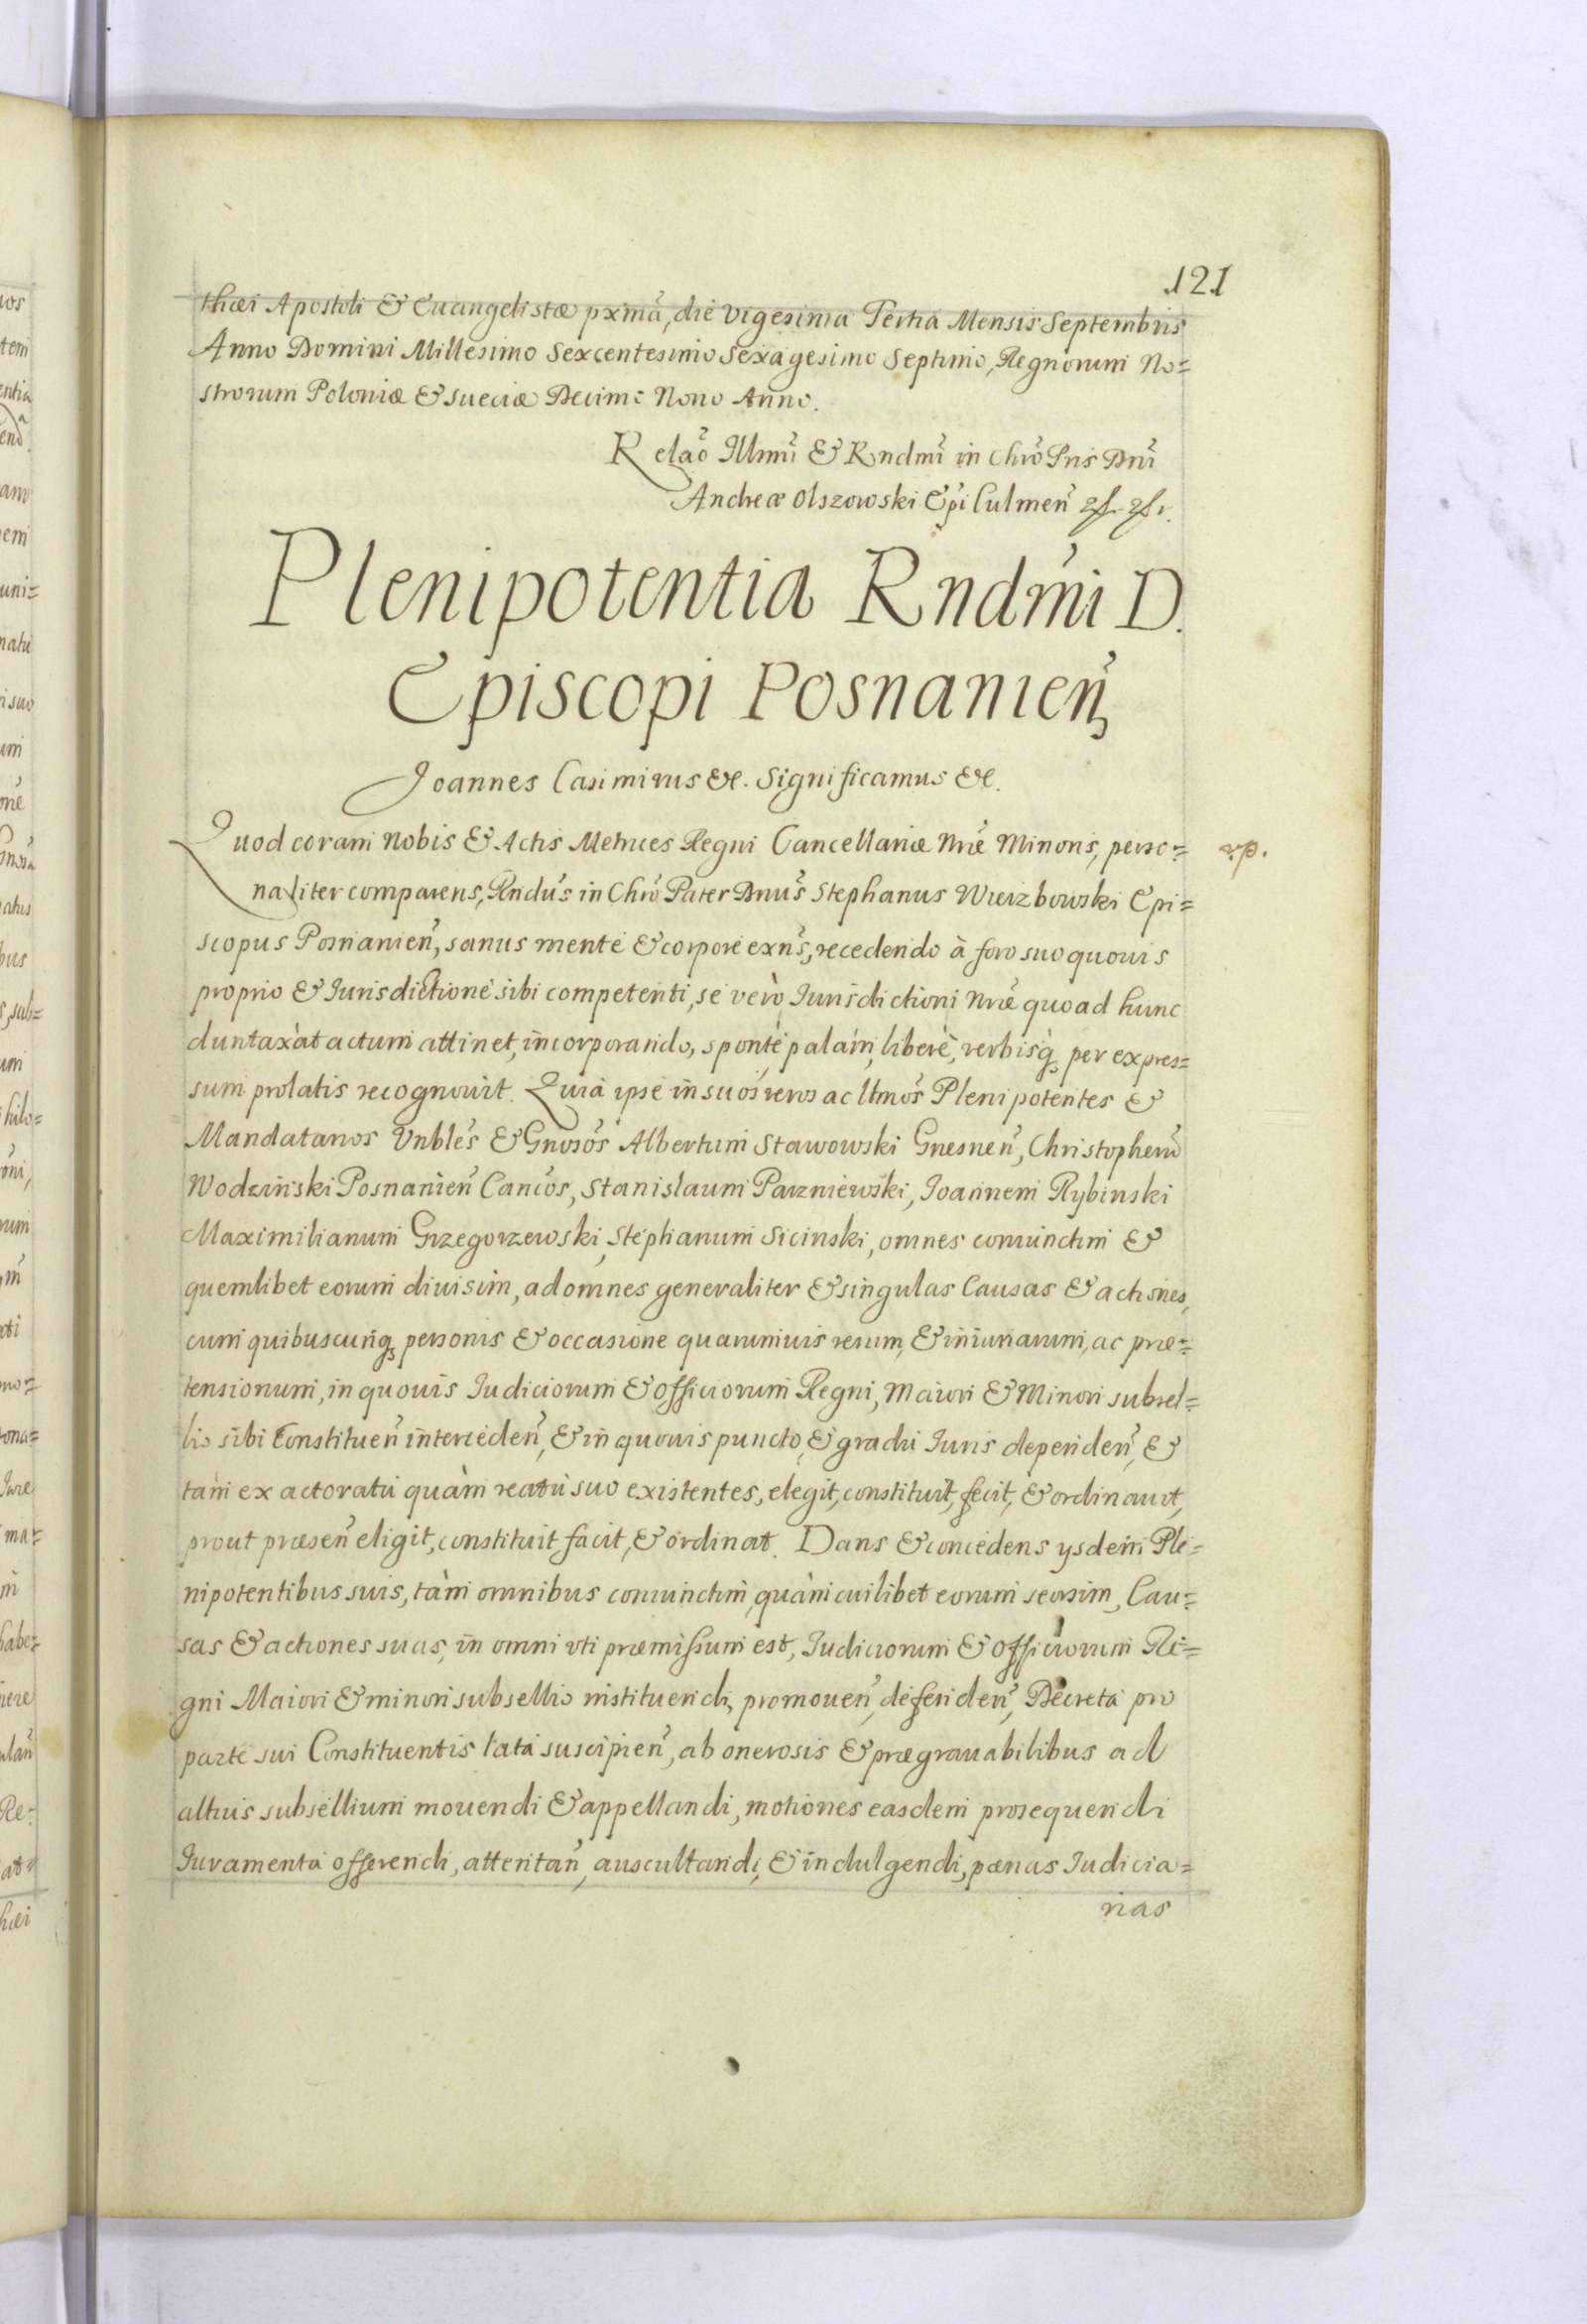 121
thæi Apostoli & Euangelistæ pxmã, die Vigesima Tertia Mensis Septembris
Anno Domini Millesimo Sexcentesimo Sexagesimo Septimo, Regnorum No=
strorum Poloniæ & Sueciæ Decimo Nono Anno.
Relaõ Illmĩ & Rndmĩ in Chrõ Pris Dnĩ
Andreæ Olszowski Epĩ Culmeñ
Plenipotentia Rndmĩ D.
Episcopi Posnanieñ
Joannes Casimirus &c. Significamus &c.
Quod coram Nobis & Actis Metrices Regni Cancellariæ Nræ Minoris, perso=
naliter comparens, Rndus in Chrõ Pater Dnus Stephanus Wierzbowski Epi=
scopus Posnanieñ, sanus mente & corpore exns, recedendo à foro suo quouis
proprio & Jurisdictione sibi competenti, se verò Jurisdictioni Nræ quoad hunc
duntaxàt actum attinet, incorporando, sponte palàm, liberè, verbisq, per expres=
sum prolatis recognouit. Quia ipse in suos veros ac ltmos Plenipotentes &
Mandatarios Vnbles & Gnosos Albertum Stawowski Gnesneñ, Christopherũ
Wodzinski Posnanieñ Cancos, Stanislaum Parzniewski, Joannem Rybinski
Maximilianum Grzegorzewski, Stephanum Sicinski, omnes coniunctim &
quemlibet eorum diuisim, ad omnes generaliter & singulas Causas & actiones,
cum quibuscunq, personis & occasione quarumuis rerum, & iniuriarum, ac præ=
tensionum, in quouis Judiciorum & Officiorum Regni, Maiori & Minori subsel=
lio sibi Constitueñ intercedeñ, & in quouis puncto, & gradu Juris dependeñ, &
tàm ex actoratu quàm reatu suo existentes, elegit, constituit, fecit, & ordinauit,
prout præseñ eligit, constituit, facit, & ordinat. Dans & concedens ysdem Ple=
nipotentibus suis, tàm omnibus coniunctim, quàm cuilibet eorum seorsim, Cau=
sas & actiones suas, in omni vti præmissum est, Judiciorum & Officiorum Re=
gni Maiori & minori subsellio instituendi, promoueñ, defendeñ, Decreta pro
parte sui Constituentis lata suscipieñ, ab onerosis & prægrauabilibus ad
altius subsellium mouendi & appellandi, motiones easdem prosequendi
Juramenta offerendi, attentañ, auscultandi, & indulgendi, pænas Judicia=
rias